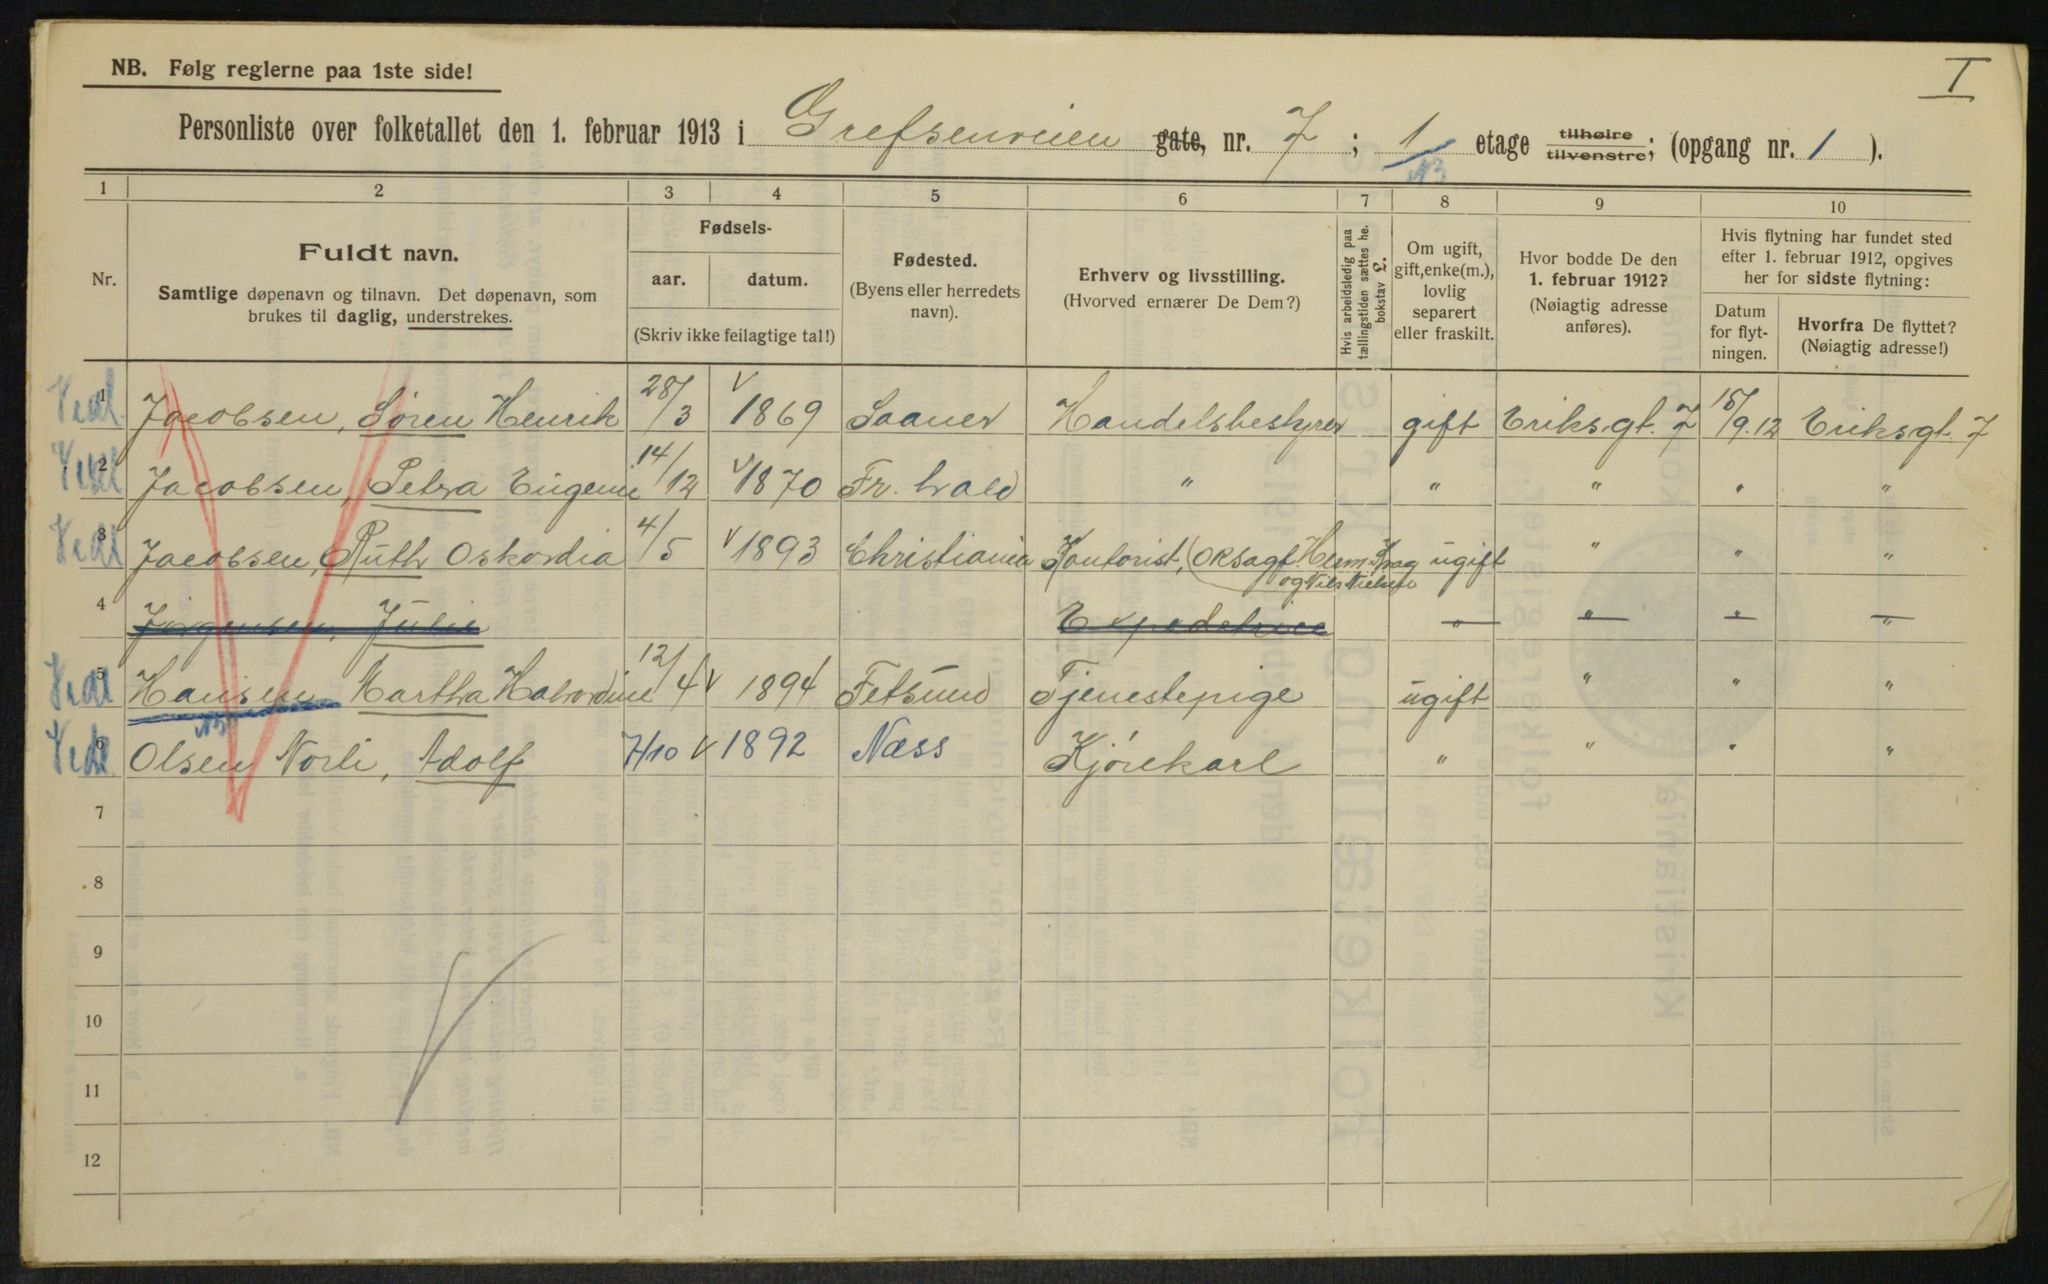 I
NB. Følg reglerne paa 1ste side!
Personliste over folketallet den 1. februar 1913 i Grefsenveien gate, nr. 7 ; 1 etage tilhøire tilvenstre; (opgang nr. 1 ).
1 2 3 4 5 6 7 8 9 10
Nr.
Fuldt navn.
Samtlige døpenavn og tilnavn. Det døpenavn, som
brukes til daglig, understrekes.
Fødsels-
aar. datum.
(Skriv ikke feilagtige tal!)
Fødested.
(Byens eller herredets
navn).
Erhverv og livsstilling.
(Hvorved ernærer De Dem?)
Hvis arbeidsledig paa
tællingstiden sættes he.
bokstav L.
Om ugift,
gift, enke(m.),
lovlig
separert
eller fraskilt.
Hvor bodde De den
1. februar 1912?
(Nøiagtig adresse
anføres).
Hvis flytning har fundet sted
efter 1. februar 1912, opgives
her for sidste flytning:
Datum
for flyt-
ningen.
Hvorfra De flyttet?
(Nøiagtig adresse!)
1 Jacobsen, Søren Henrik 28/3 1869 Saaner Handelsbestyrer gift Eriksgt. 7 15/9.12 Eriksgt. 7
2 Jacobsen, Petra Eugenie 14/12 1870 Fr. hald " " " " "
3 Jacobsen, Ruth Oskordia 4/5 1893 Christiania Kontorist, (Oksagf. Herm. Krag og Nils Nielsen ugift " " "
4 Jørgensen, Julie Expeditrice " " " "
5 Hansen Martha Halvordine 12/4 1894 Fetsund Tjenestepige ugift " " "
6 Olsen Norli, Adolf 7/10 1892 Næss Kjørekarl " " " "
7
8
9
10
11
12